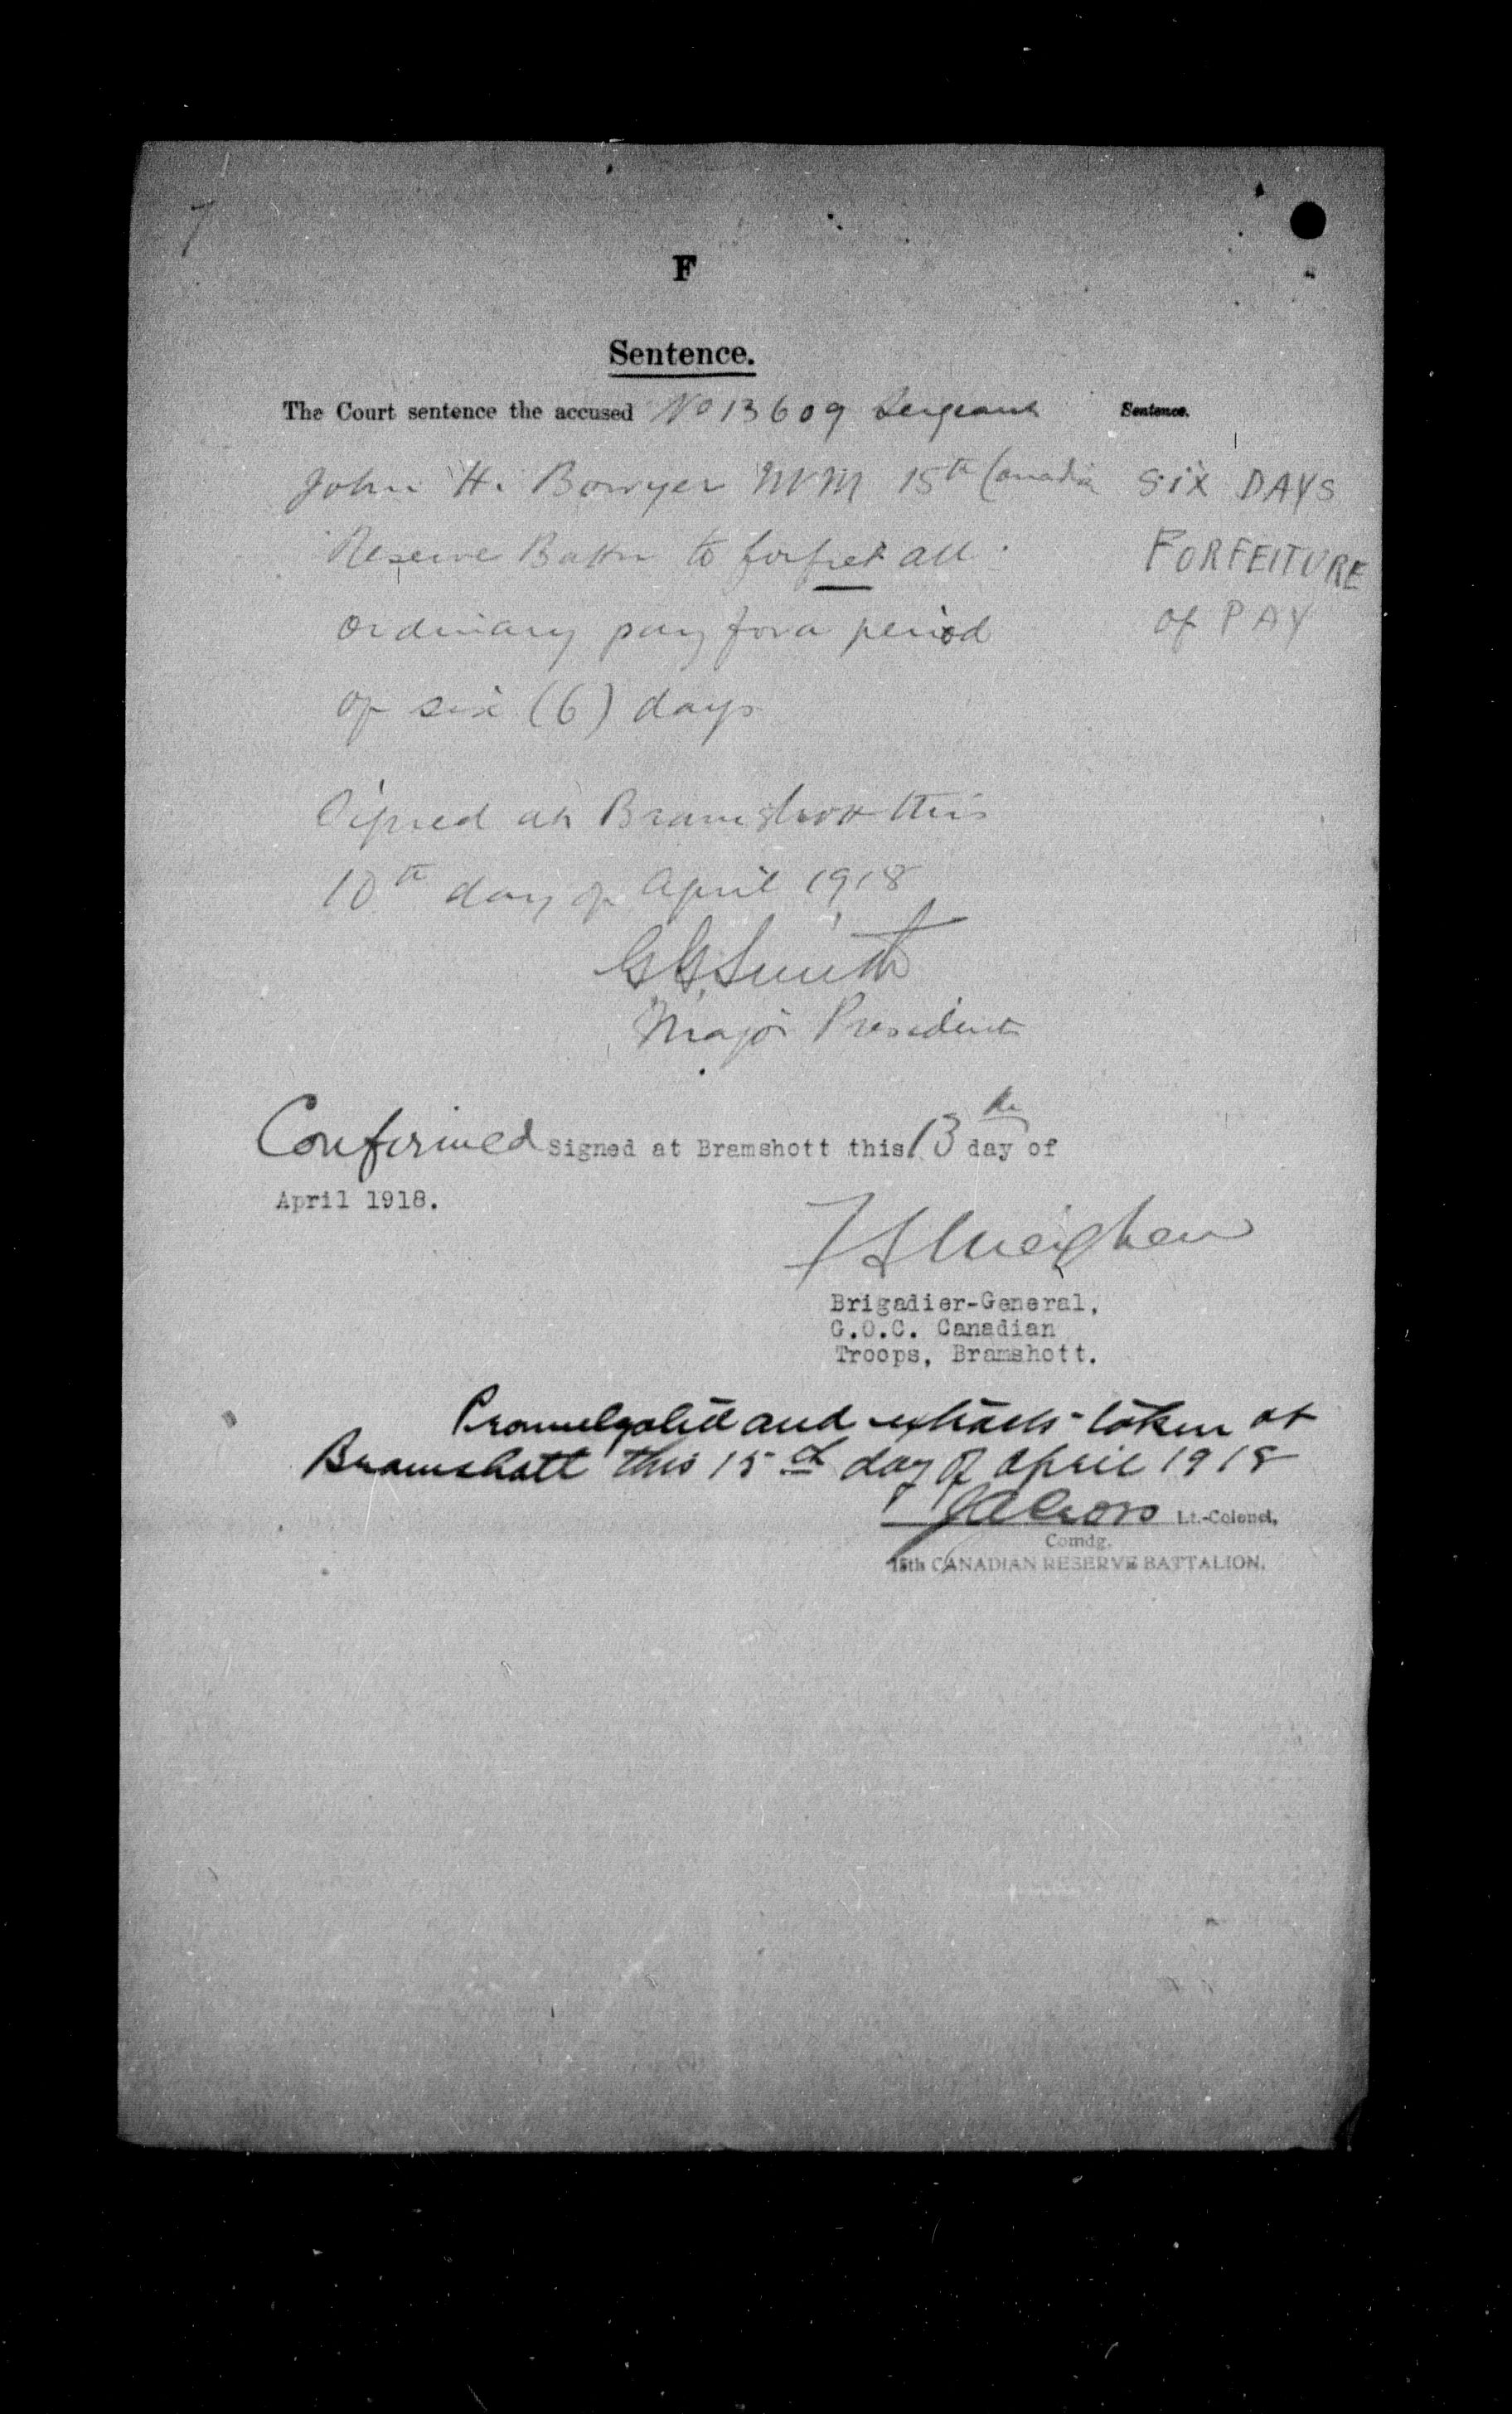 7
F
Sentence.
The Court sentence the accused No 13609 Sergeant
Sentence.
John H. Bowyer MM 15th Canadian
SIX DAYS
Reserve Battn to forfiet all
FORFEITURE
ordinary pay for a period
of PAY
of six (6) days
Signed at Bramshott this
10th day of April 1918
G G Smith
Major President
Confirmed Signed at Bramshott this 13th day of
April 1918.
F S Meighen
Brigadier-General,
G.O.C. Canadian
Troops, Bramshott.
Promulgated and extracts taken at
Bramshott this 15th day of April 1918
Lt.-Colonel,
Comdg.
15th CANADIAN RESERVE BATTALION.